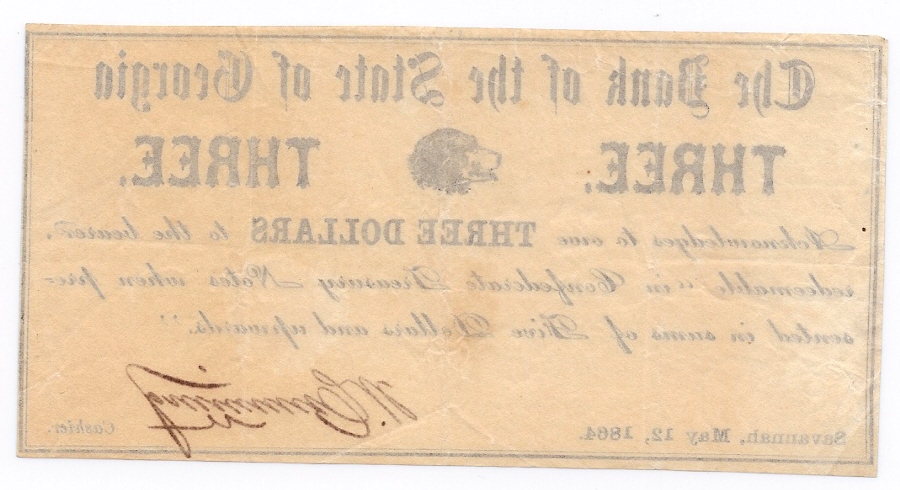 The Bank of the State of Georgia
THREE. THREE.
Acknowledges to owe THREE DOLLARS to the bearer,
redeemable "in Confederate Treasury Notes when pre-
sented in sums of Five Dollars and upwards."
Savannah, May 12, 1864. Cashier.